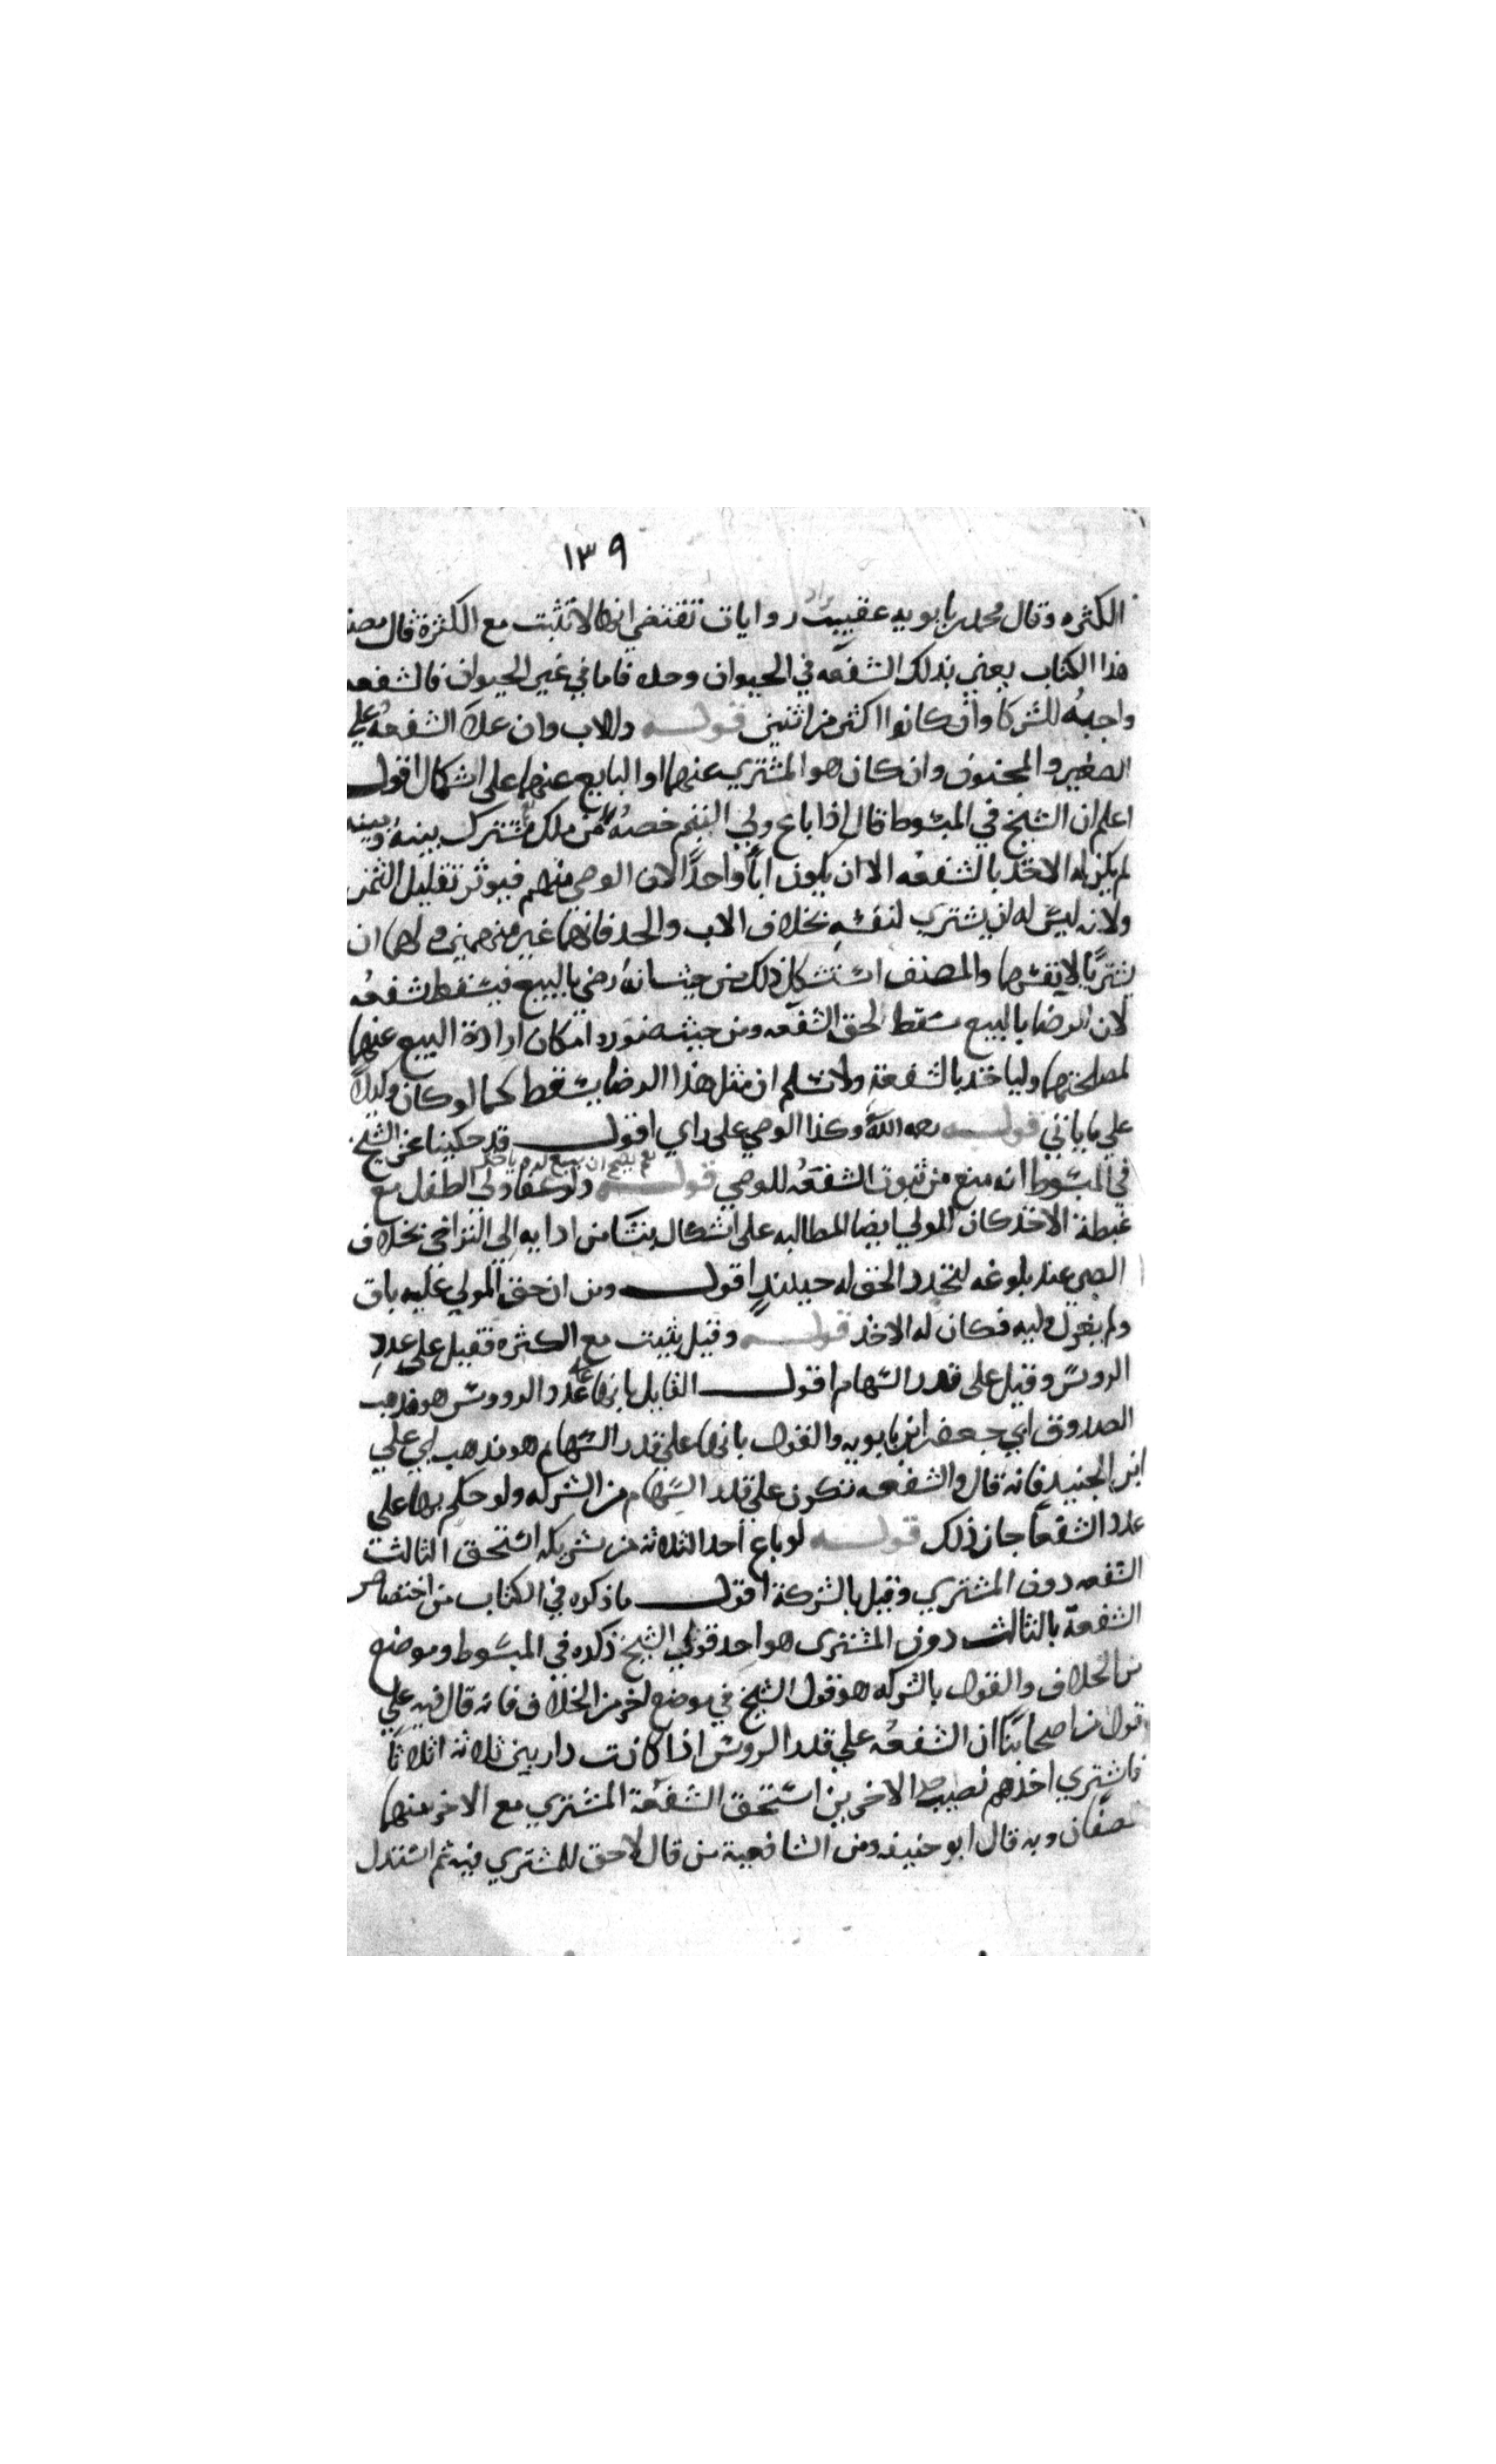 ١٣٩
الكثره وقال محمد بن بابويه عقيب ايراد روايات تقتضي انها لا تثبت مع الكثرة قال مصنف
هذا الكتاب يعني بذلك الشفعه في الحيوان وحده فاما في غير الحيوان فالشفعه
واجبهُ للشركا وان كانوا اكثر من اثنين قولـــه والاب وان علا الشفعهُ على
الصغير والمجنون وان كان هو المشتري عنهما او البايع عنهما على اشكال اقول
اعلم ان الشيخ في المبسوط قال اذا باع ولي اليتيم حصتُه من ملك مشترك بينهُ وبينه
لم يكن له الاخذ بالشفعه الا ان يكون اباً واحداً لان الوصي متهم فيوثر تقليل الثمن
ولانه ليس له ان يشتري لنفسه بخلاف الاب والجد فانهما غير متهمين و لهما ان
يشتريا لانفسهما والمصنف استشكل ذلك من حيث انه رضي بالبيع فيسقط شفعتُه
لان الرضا بالبيع مسقط لحق الشفعه ومن حيث امكان ارادة البيع عنهما
لمصلحتهما ولياخذ بالشفعة ولا نسلم ان مثل هذا الرضا يسقط كما لو كان وكيلاً
على ما ياتي قولـــه رحمه الله وكذا الوصي على راي اقولـــ قد حكينا عن الشيخ
في المبسوط انه منع من ثبوت الشفعهُ للوصي قولـــه ولو عفا ولي الطفل مع
نعم يصح ان يبيع له و ياخذ
غبطة الاخذ كان للمولي ايضا المطالبه على اشكال ينشا من ادايه الي التراخي بخلاف
الصبي عند بلوغه لتجدد الحق له حينئذٍ اقولـــ ومن ان حق المولي عليه باق
ولم يعزل وليه فكان له الاخذ قولـــه وقيل يثبت مع الكثره فقيل على عدد
الروس وقيل على قدر السهام اقولـــ القايل بانها على عدد الرووس هو مذهب
الصدوق ابي جعفر ابن بابويه والقول بانها على قدر السهام هو مذهب ابي علي
ابن الجنيد فانه قال والشفعه تتكون على قدر السهام من الشركه ولو حكم بها على
عدد الشفعا جاز ذلك قولـــه لو باع احد الثلاثه من شريكه استحق الثالث
الشفعه دون المشتري وقيل بالشركة اقولـــ ما ذكره في الكتاب من اختصاص
الشفعة بالثالث دون المشتري هو احد قولي الشيخ ذكره في المبسوط وموضع
من الخلاف والقول بالشركه هو قول الشيخ في موضع اخر من الخلاف فانه قال فيه على
قول من اصحابنا ان الشفعُه على قدر الروس اذا كانت دار بين ثلاثه اثلاثا
فاشتري احدهم نصيب احد الاخرين استحق الشفعة المشتري مع الاخر بينهما
نصفان وبه قال ابو حنيفه ومن الشافعية من قال لا حق للمشتري فيه ثم استدل